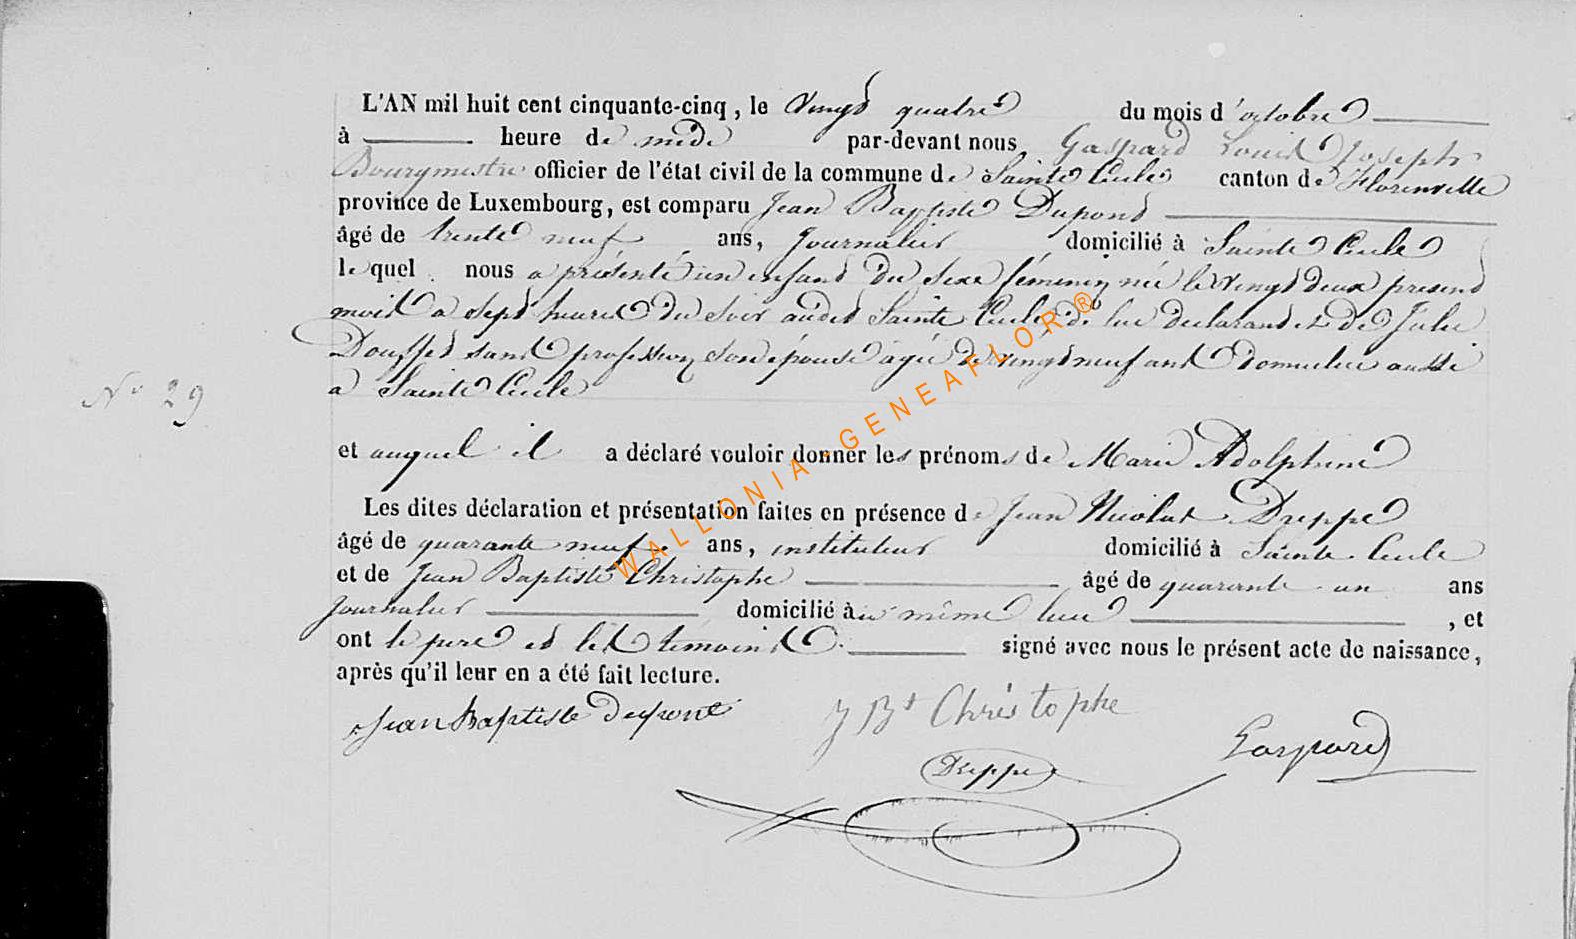 L'AN mil huit cent cinquante-cinq, le Vingt quatre du mois d'octobre
à heure de midi par-devant nous Gaspard Louis Joseph
Bourgmestre officier de l'état civil de la commune de Sainte Cecile canton de Florenville
province de Luxembourg, est comparu Jean Baptiste Dupond
âgé de trente neuf ans, Journalier domicilié à Sainte Cecile
lequel nous a présenté un enfand du sexe féminin née le vingd deux presend
mois a sept heures du soir audit Sainte Cecile, de lui declarand et de Julie
sans profession son épouse agée de vingd neuf ans domiciliée aussi
a Sainte Cecile
N° 29
et auquel il a déclaré vouloir donner les prénoms de Marie Adolphine
Les dites déclaration et présentation faites en présence de Jean Nicolas Dreppe
âgé de quarante neuf ans, instituteur domicilié à Sainte Cecile
et de Jean Baptiste Christophe âgé de quarante un ans
Journalier domicilié au même lieu , et
ont le pere et les témoins signé avec nous le présent acte de naissance,
après qu'il leur en a été fait lecture.
Jean Baptiste Dupont J Bt Christophe
Dreppe Gaspard
WALLONIA - GENEAFLOR ®